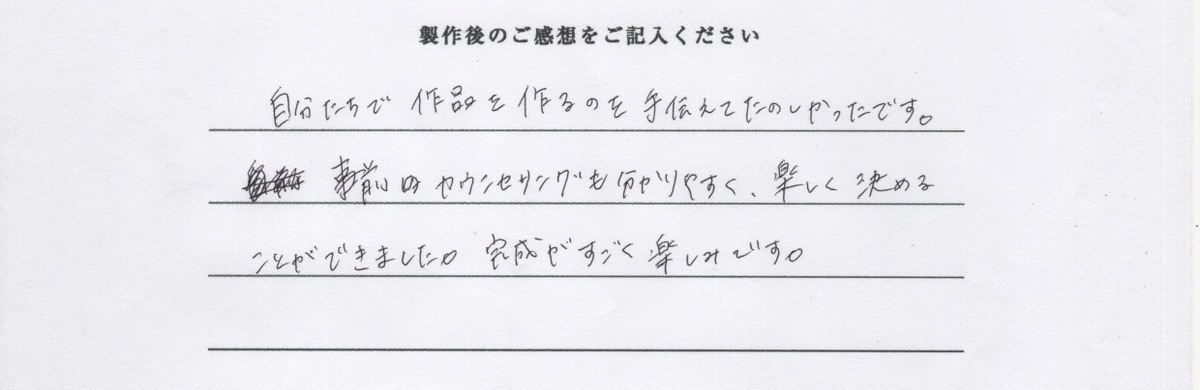 製作後のご感想をご記入ください
自分たちで作品を作るのを手伝えてたのしかったです。
事前のカウンセリングも分かりやすく、楽しく決める
ことができました。完成がすごく楽しみです。